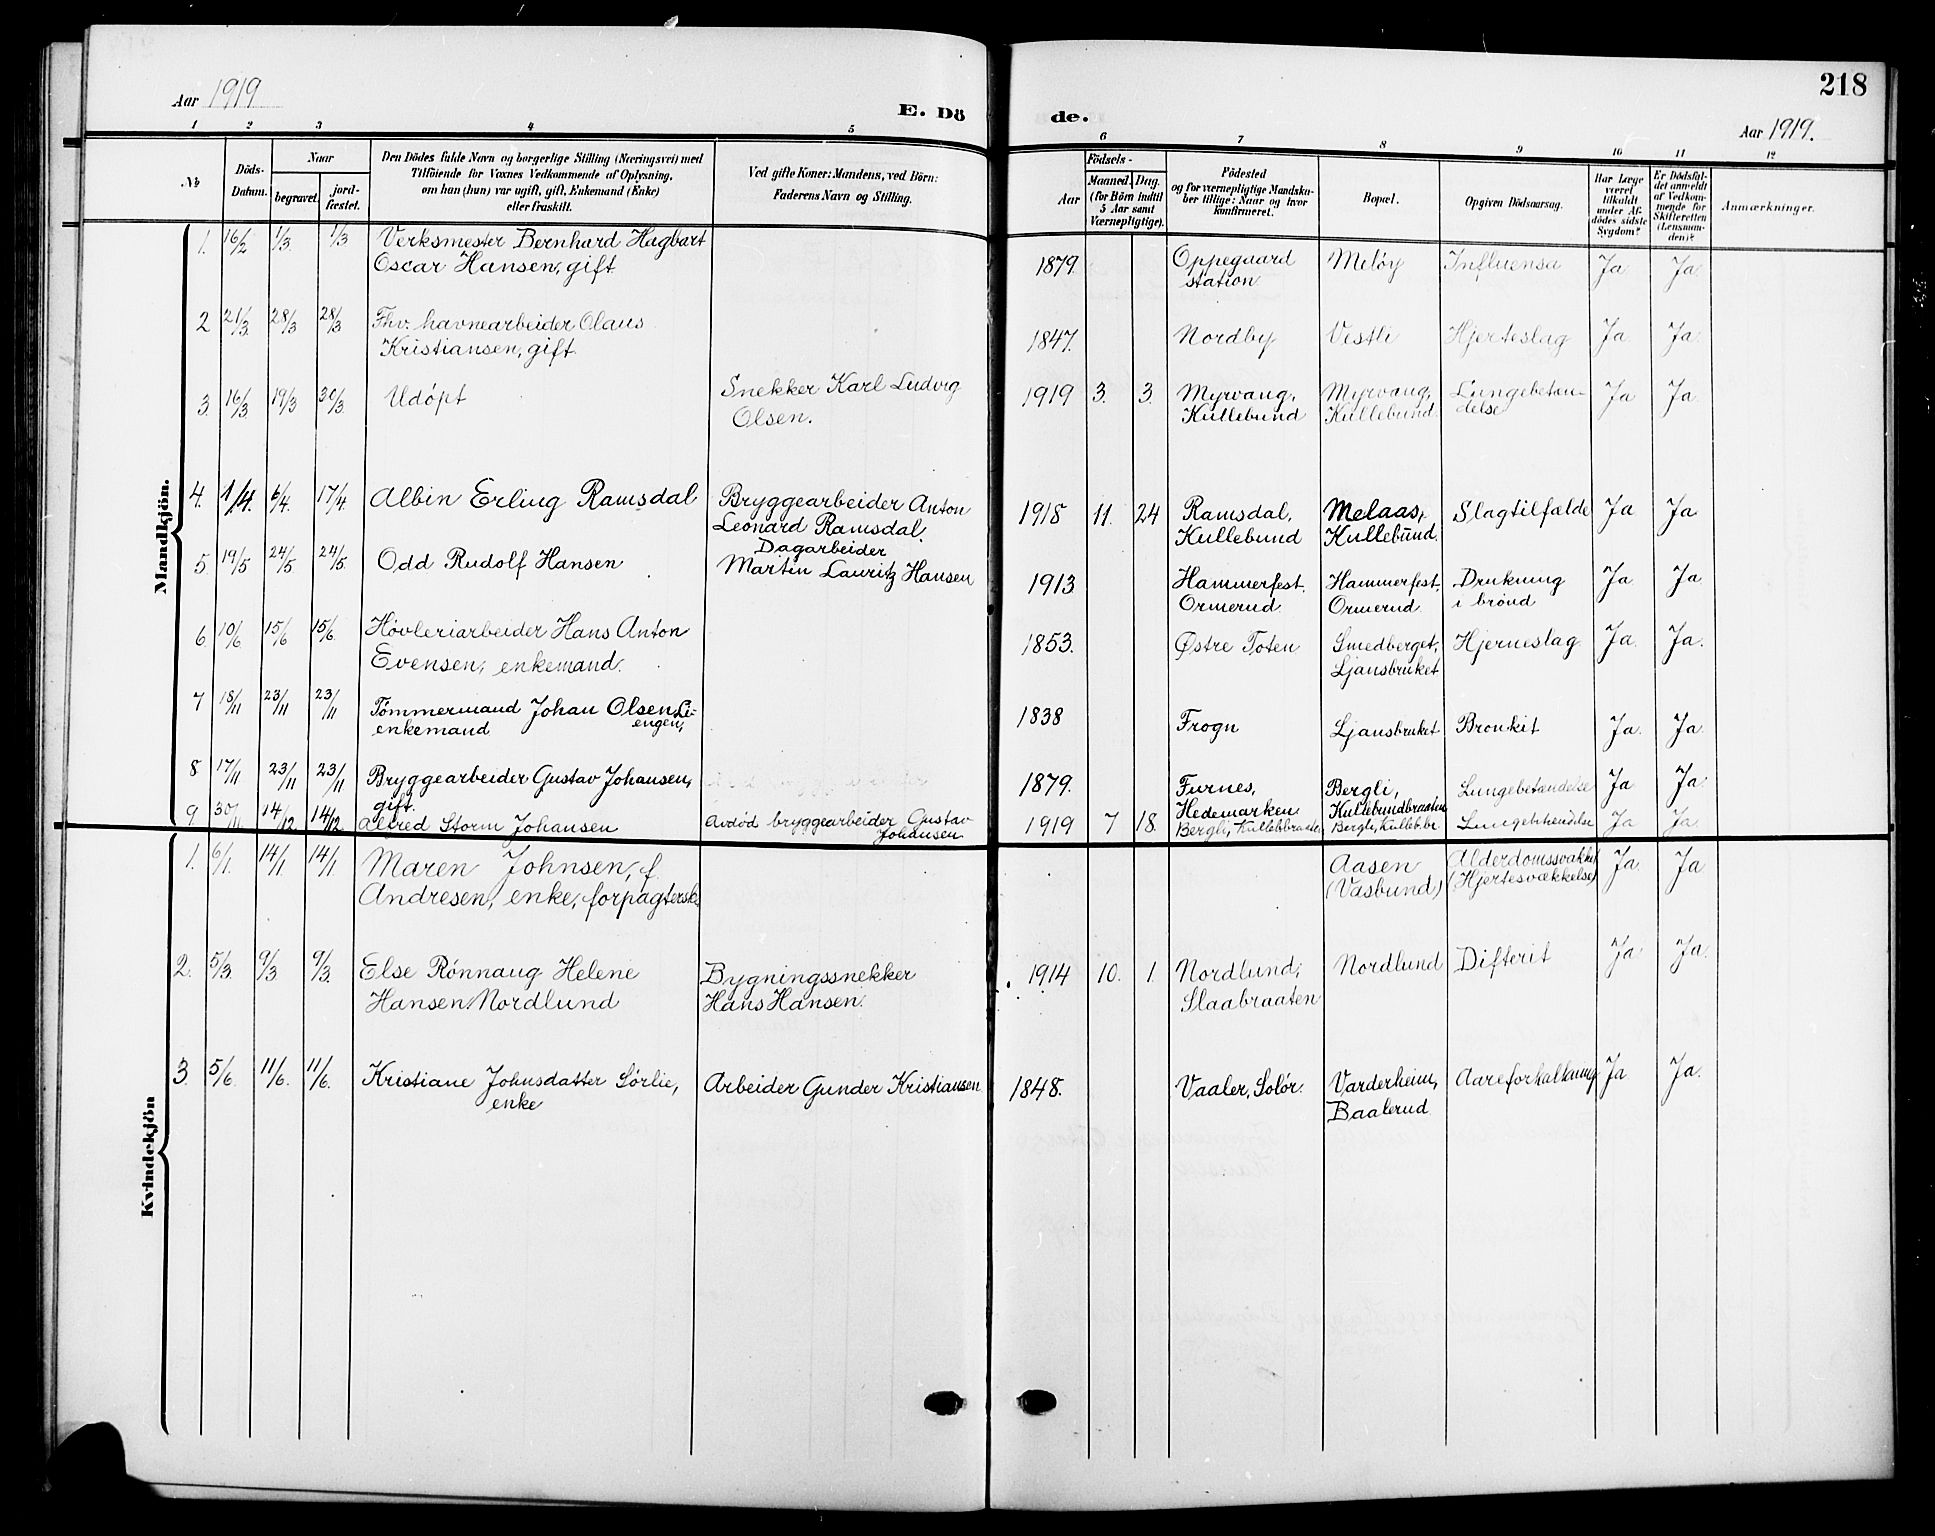 218
Aar 1919
E. Dö
de.
Aar 1919.
1 2 3 4 5 6 7 8 9 10 11 12
№
Döds-
Datum.
Naar
begravet.
jord-
fæstet.
Den Dödes fulde Navn og borgerlige Stilling (Næringsvei) med
Tilföiende for Voxnes Vedkommende af Oplysning,
om han (hun) var ugift, gift, Enkemand (Enke)
eller fraskilt.
Ved gifte Koner: Mandens, ved Börn:
Faderens Navn og Stilling.
Födsels-
Aar
Maaned. Dag.
(for Börn indtil
5 Aar samt
Værnepligtige).
Födested
og for værnepligtige Mandska-
ber tillige: Naar og hvor
konfirmeret.
Bopæl.
Opgiven Dödsaarsag.
Har Læge
været
tilkaldt
under Af-
dödes sidste
Sygdom?
Er Dödsfal-
det anmeldt
af Vedkom-
mende for
Skifteretten
(Lensman-
den)?
Anmærkninger.
Mandkjön.
1. 16/2 1/3. 1/3 Verksmester Bernhard Hagbart
Oscar Hansen, gift 1879. Oppegaard Meløy Influensa Ja Ja
station
2 21/3. 28/3 28/3 Fhv. havnearbeider Olaus
Kristiansen, gift. 1847. Nordby Vestli Hjerteslag Ja Ja
3. 16/3. 19/3 30/3. Udøpt Snekker Karl Ludvig
Olsen. 1919 3. 3. Myrvang, Myrvang, Lungebetæn- Ja Ja
Kullebund Kullebund delse
4. 1/4. 6/4. 17/4. Albin Erling Ramsdal Bryggearbeider Anton
Leonard Ramsdal. 1918 11. 24 Ramsdal, Melaas, Slagtilfælde Ja Ja
Kullebund Kullebund.
5. 19/5 24/5 24/5. Odd Rudolf Hansen Dagarbeider
Martin Lauritz Hansen 1913. Hammerfest. Hammerfest. Drukning Ja Ja
Ormerud. Ormerud. i brønd
6. 10/6. 15/6 15/6. Høvleriarbeider Hans Anton
Evensen, enkemand. 1853. Østre Toten Smedberget, Hjerneslag Ja. Ja.
Ljansbruket
7 18/11 23/11 23/11 Tømmermand Johan Olsen Li-
enkemand engen, 1838 Frogn Ljansbruket Bronkit Ja. Ja
8 17/11 23/11 23/11 Bryggearbeider Gustav Johansen,
gift. 1879. Furnes, Bergli, Lungebetændelse Ja Ja
Hedemarken Kullebundbraaten
9. 30/11 14/12 14/12. Alfred Storm Johansen Avdød bryggearbeider Gustav
Johansen 1919 7 18. Bergli, Kullebbraaten Bergli, Kulleb.br. Lungebetændelse Ja Ja
Kvindekjön
1. 6/1. 14/1. 14/1. Maren Johnsen, f.
Andresen, enke, forpagtersk. Aasen Alderdomssvakhet Ja Ja
(Vasbund) (Hjertesvækkelse)
2. 5/3. 9/3 9/3. Else Rønnaug Helene Bygningssnekker
Hansen Nordlund Hans Hansen. 1914 10. 1. Nordlund, Nordlund Difterit Ja Ja
Slaabraaten
3. 5/6. 11/6. 11/6. Kristiane Johnsdatter Sørlie, Arbeider Gunder Kristiansen
enke 1848. Vaaler, Solør. Varderheim, Aareforkalkning Ja Ja.
Baalerud